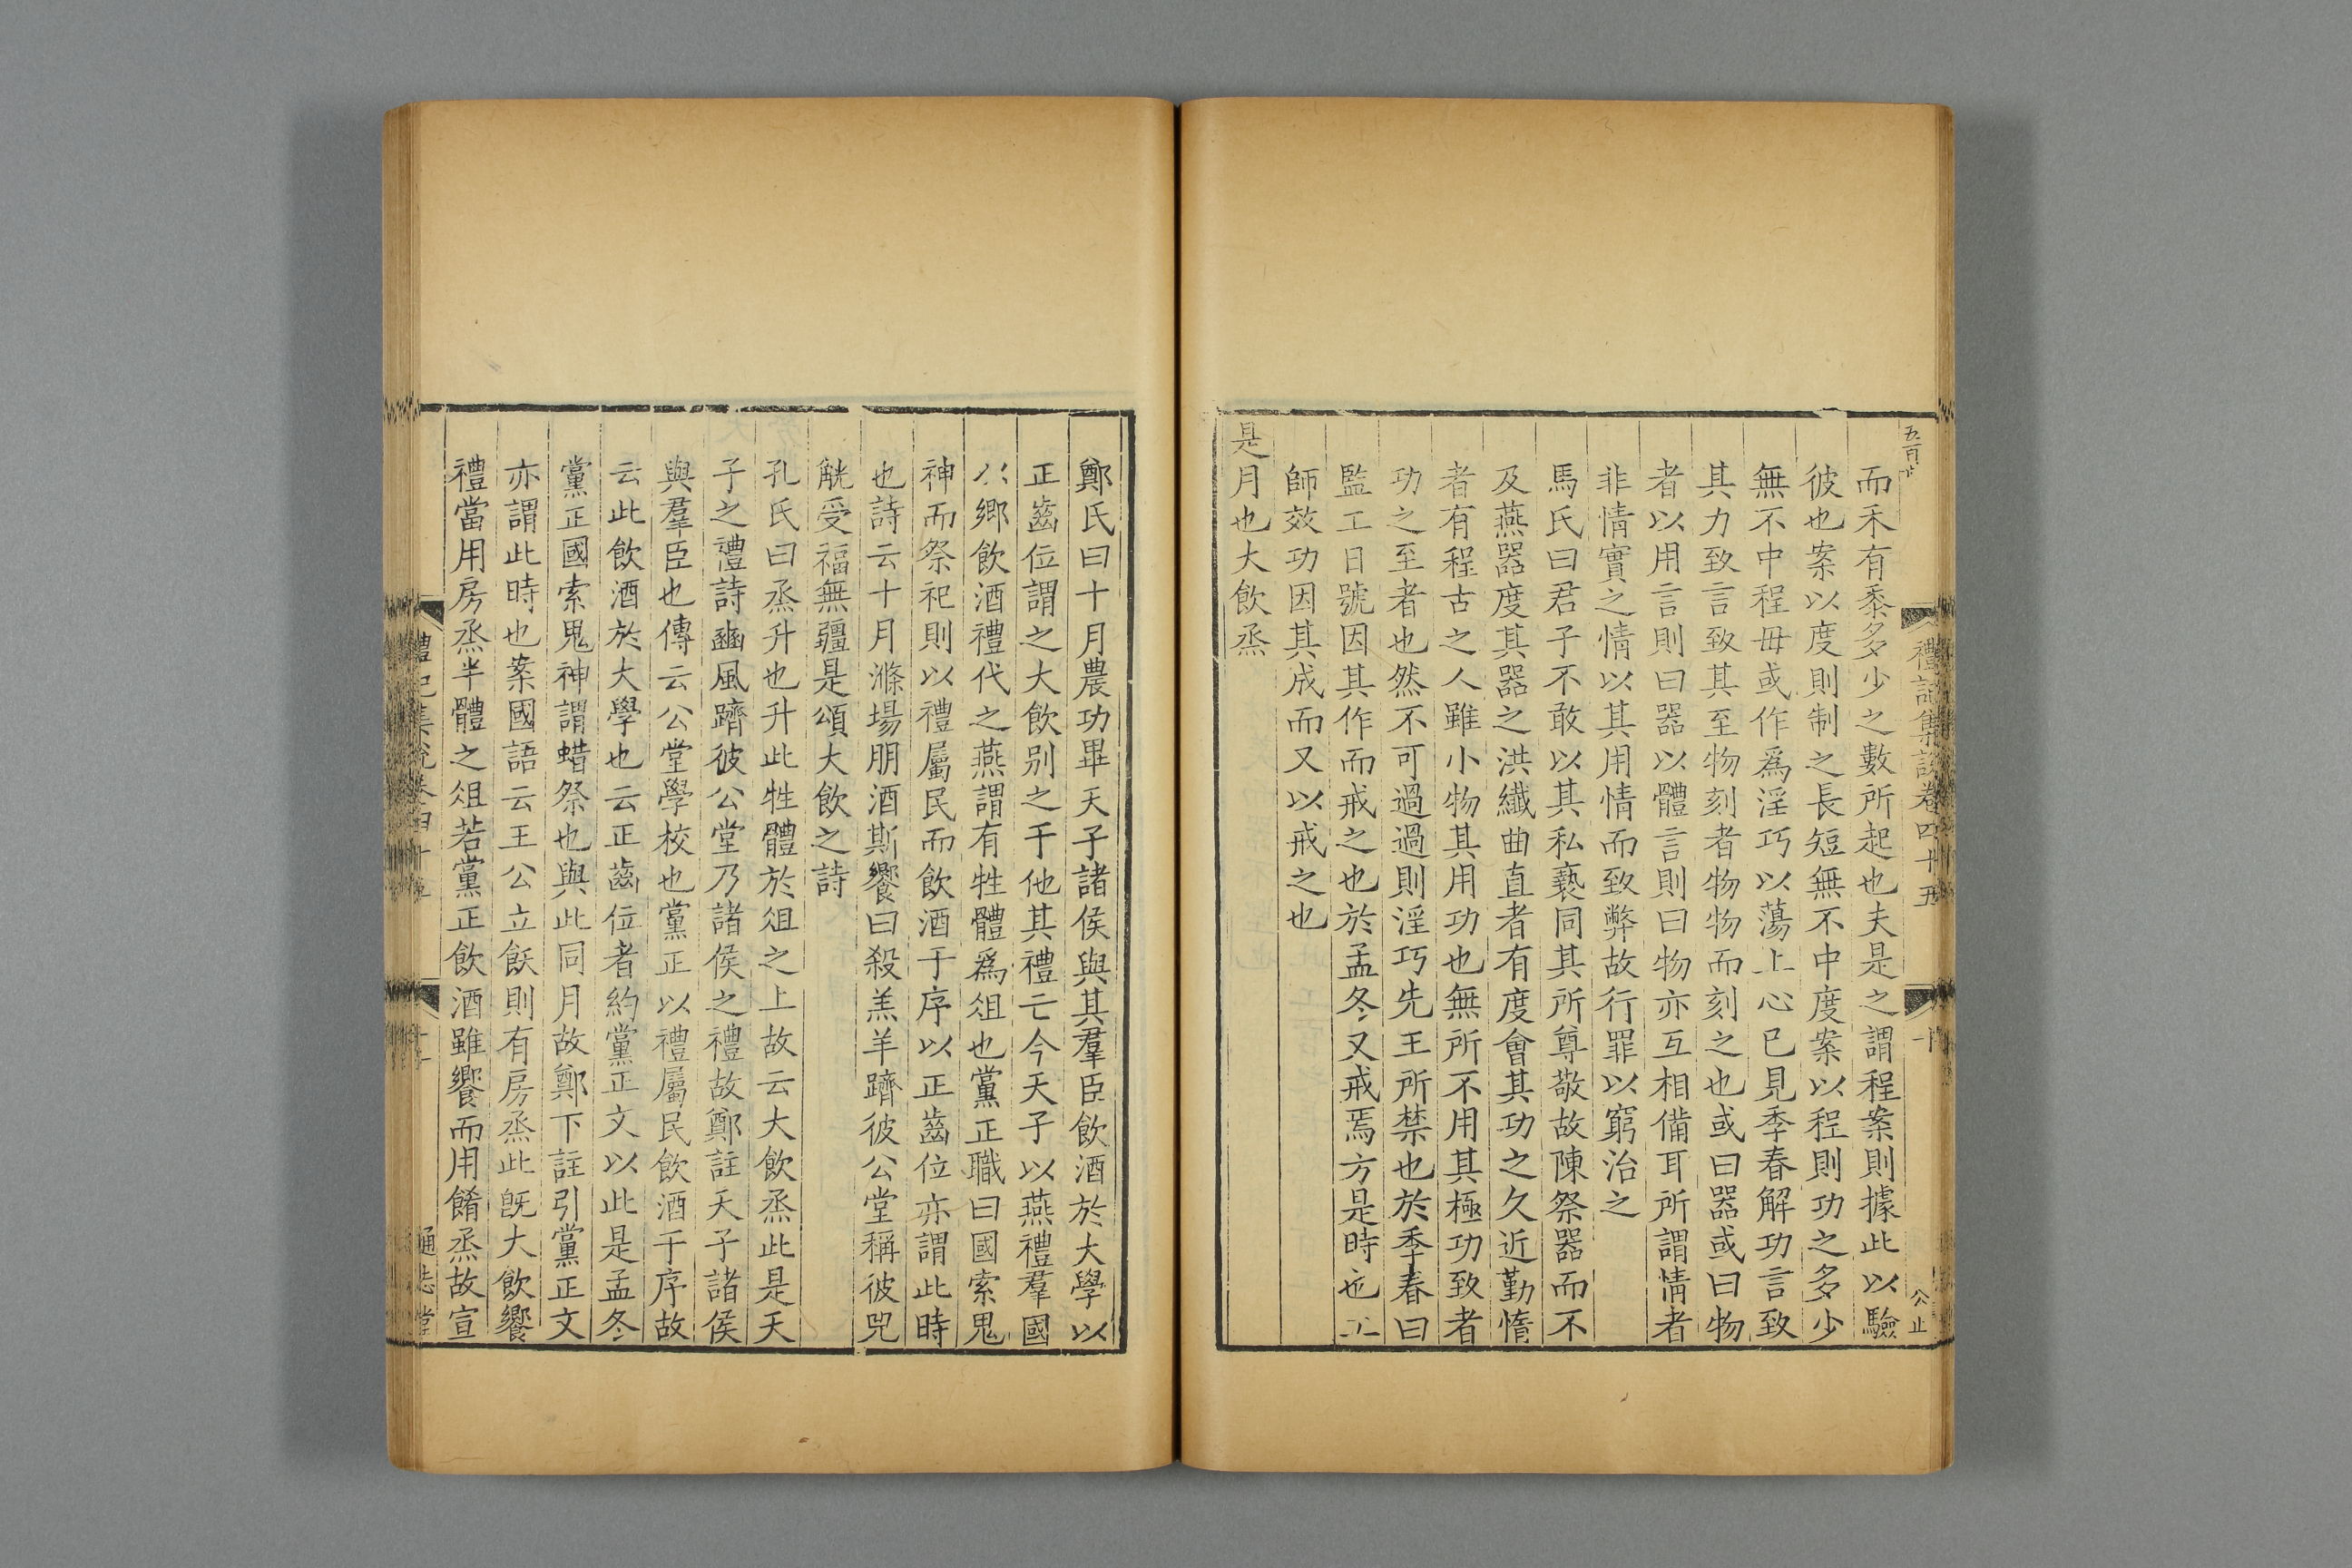 禮記集說卷四十五
十
公止
而禾有黍多少之數所起也夫是之謂程案則據此以驗
彼也案以度則制之長短無不中度案以程則功之多少
無不中程毋或作爲淫巧以蕩上心已見季春解功言致
其力致言致其至物刻者物物而刻之也或曰器或曰物
者以用言則曰器以體言則曰物亦互相備耳所謂情者
非情實之情以其用情而致弊故行罪以窮治之
馬氏曰君子不敢以其私褻同其所尊敬故陳祭器而不
及燕器度其器之洪纖曲直者有度會其功之久近勤惰
者有程古之人雖小物其用功也無所不用其極功致者
功之至者也然不可過過則淫巧先王所禁也於季春曰
監工日號因其作而戒之也於孟冬又戒焉方是時也工
師效功因其成而又以戒之也
是月也大飲烝
鄭氏曰十月農功畢天子諸侯與其羣臣飲酒於大學以
正齒位謂之大飲别之于他其禮亡今天子以燕禮羣國
以鄉飲酒禮代之燕謂有牲體爲俎也黨正職曰國索鬼
神而祭祀則以禮屬民而飲酒于序以正齒位亦謂此時
也詩云十月滌場朋酒斯饗曰殺羔羊躋彼公堂稱彼兕
觥受福無疆是頌大飲之詩
孔氏曰烝升也升此牲體於俎之上故云大飲烝此是天
子之禮詩豳風躋彼公堂乃諸侯之禮故鄭註天子諸侯
與羣臣也傳云公堂學校也黨正以禮屬民飲酒于序故
云此飲酒於大學也云正齒位者約黨正文以此是孟冬
黨正國索鬼神謂蜡祭也與此同月故鄭下註引黨正文
亦謂此時也案國語云王公立飫則有房烝此旣大飲饗
禮當用房烝半體之俎若黨正飲酒雖饗而用餚烝故宣
禮記集說卷四十五
通志堂